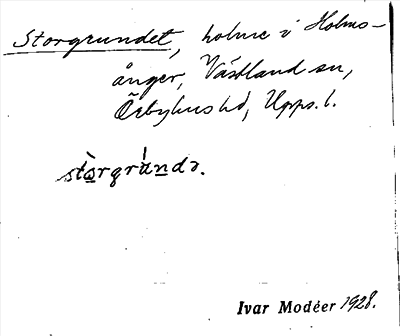 Storgrundet, holme i Holms-
ånger, Västland sn,
Örbyhus hd, Upps. l.
stòrgrúndə.
Ivar Modéer 1928.